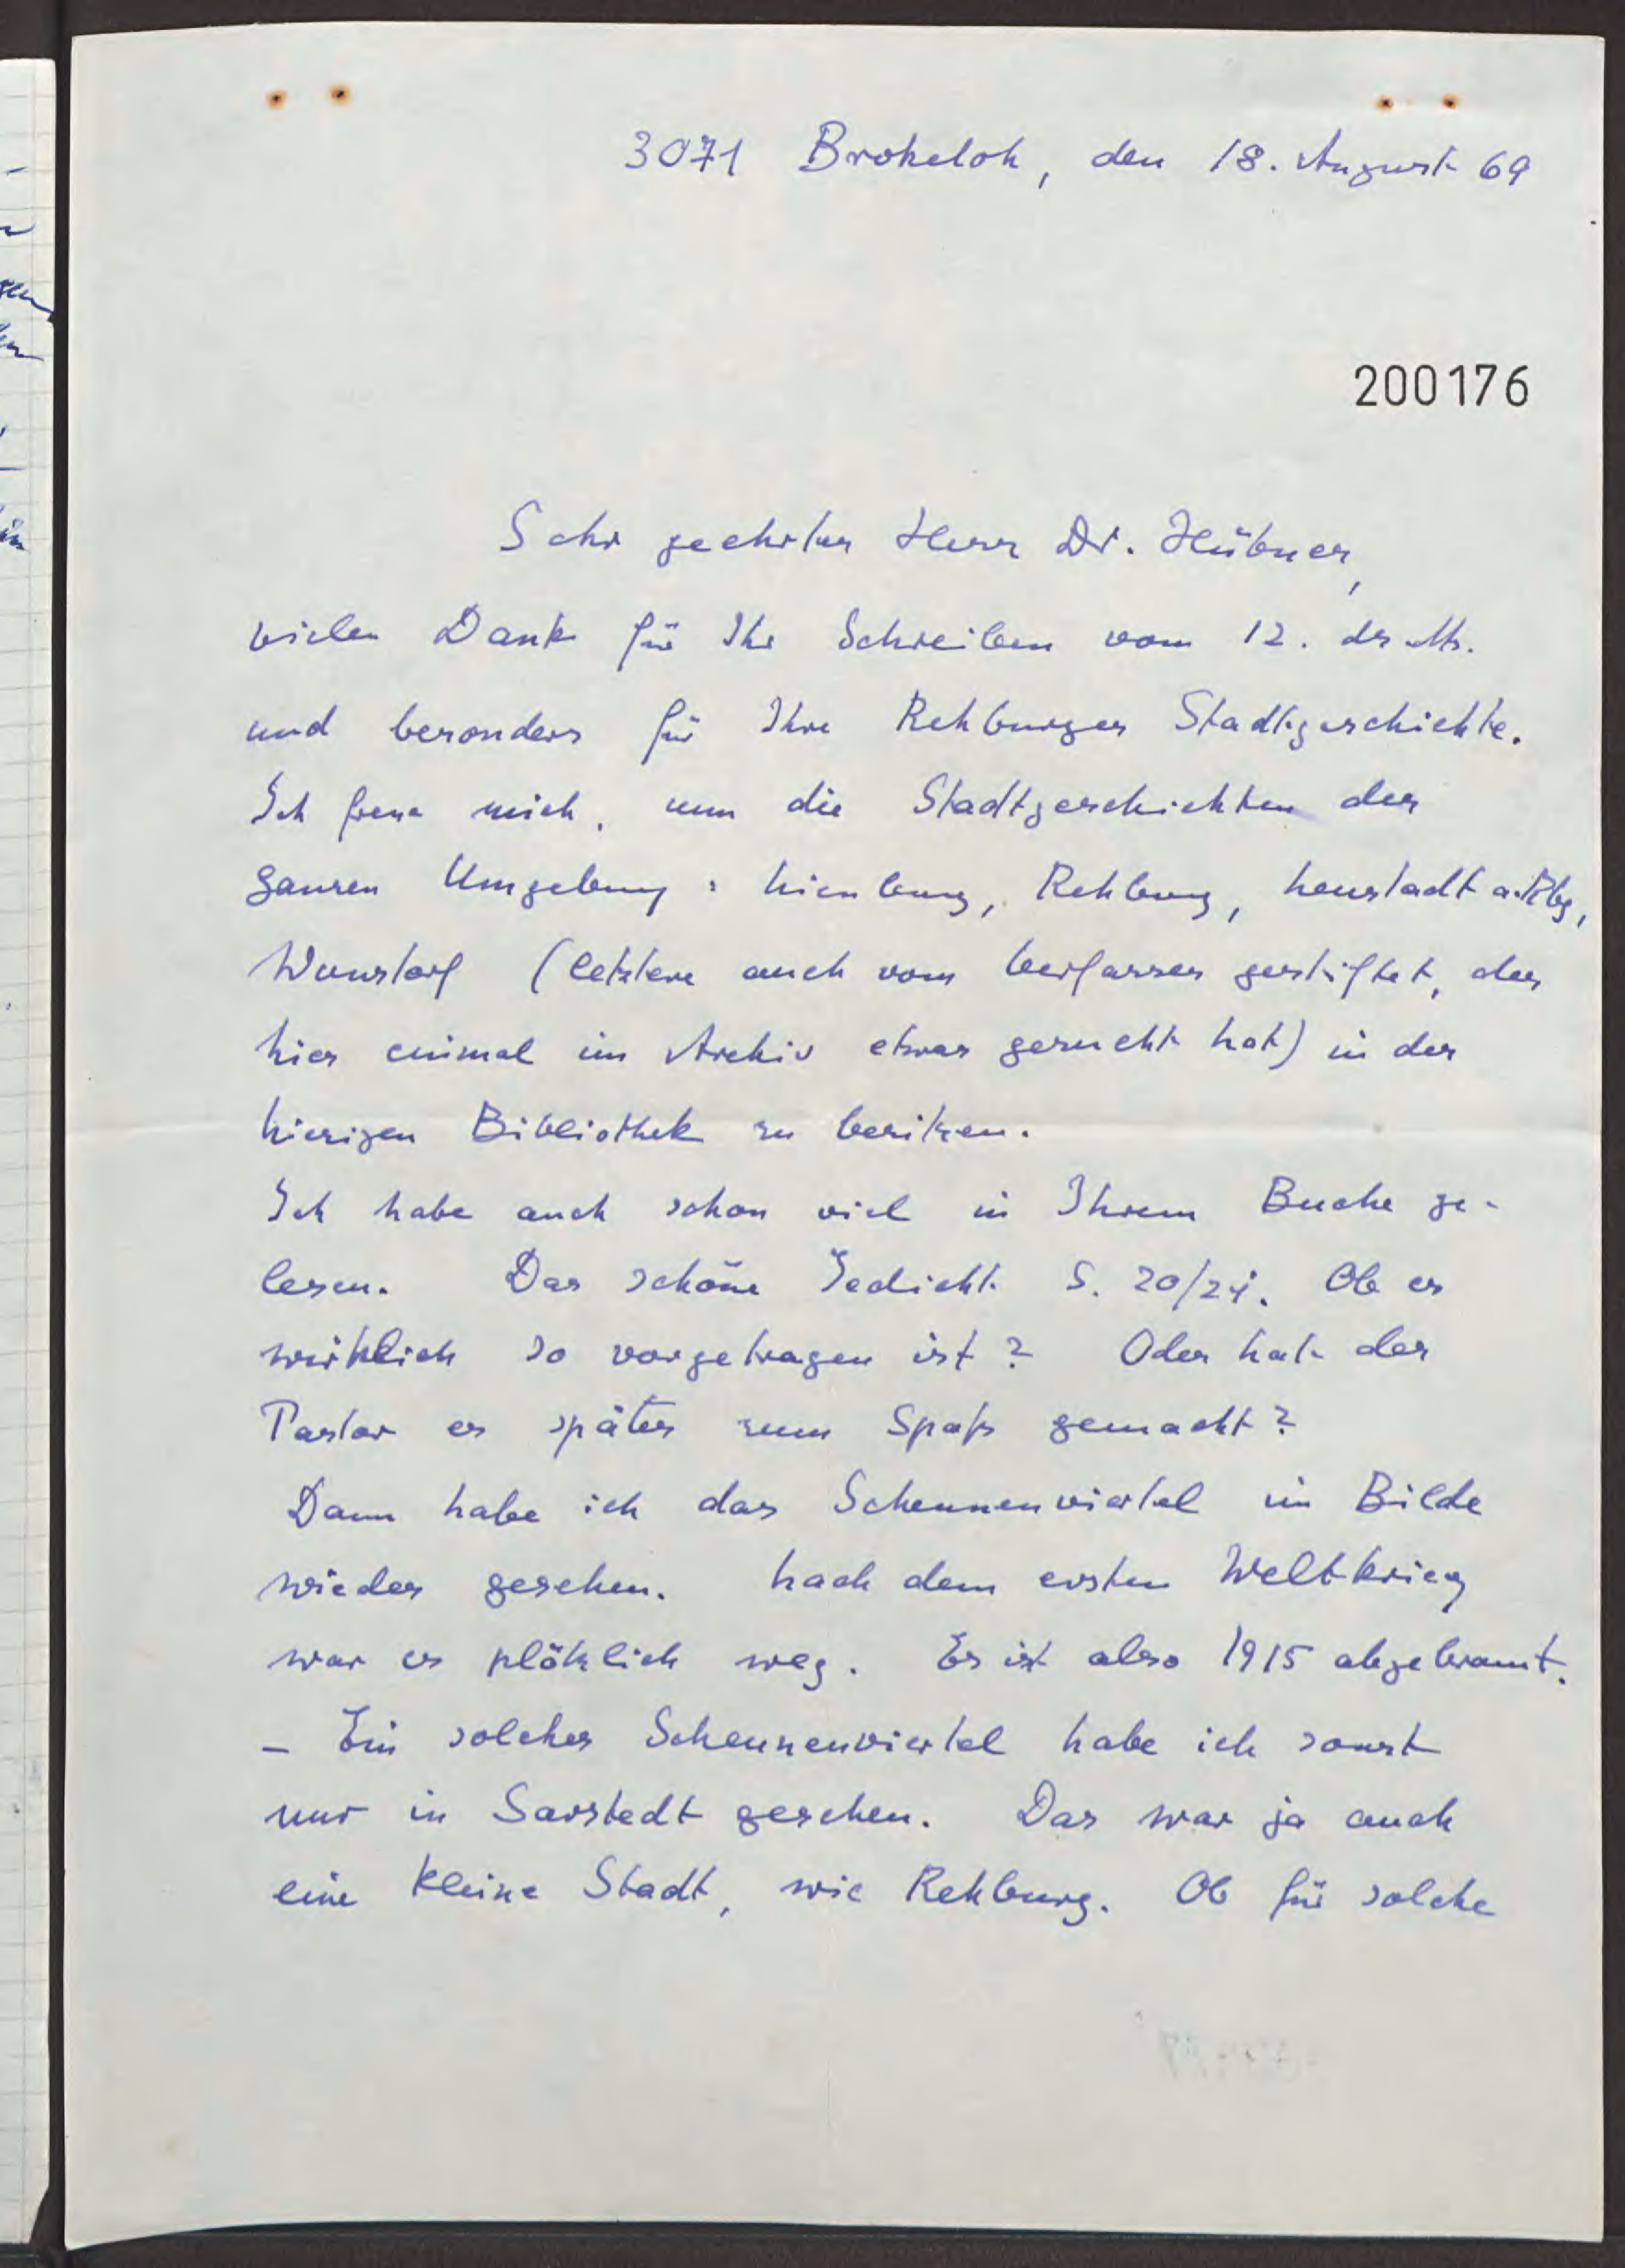 3071 Brokeloh, den 18. August 69
200176
Sehr geehrter Herr Dr. Hübner,
vielen Dank für Ihr Schreiben vom 12. ds. Mts.
und besonders für Ihre Rehburger Stadtgeschichte.
Ich freue mich, nun die Stadtgeschichten der
ganzen Umgebung: Nienburg, Rehburg, Neustadt a. Rbg,
Wunstorf (letztere auch vom Verfasser gestiftet, der
hier einmal im Archiv etwas gesucht hat) in der
hiesigen Bibliothek zu besitzen.
Ich habe auch schon viel in Ihrem Buche ge-
lesen. Das schöne Gedicht S. 20/21. Ob es
wirklich so vorgetragen ist? Oder hat der
Pastor es später zum Spaß gemacht?
Dann habe ich das Scheunenviertel im Bilde
wieder gesehen. Nach dem ersten Weltkrieg
war es plötzlich weg. Es ist also 1915 abgebrannt.
– Ein solches Scheunenviertel habe ich sonst
nur in Sarstedt gesehen. Das war ja auch
eine kleine Stadt, wie Rehburg. Ob für solche